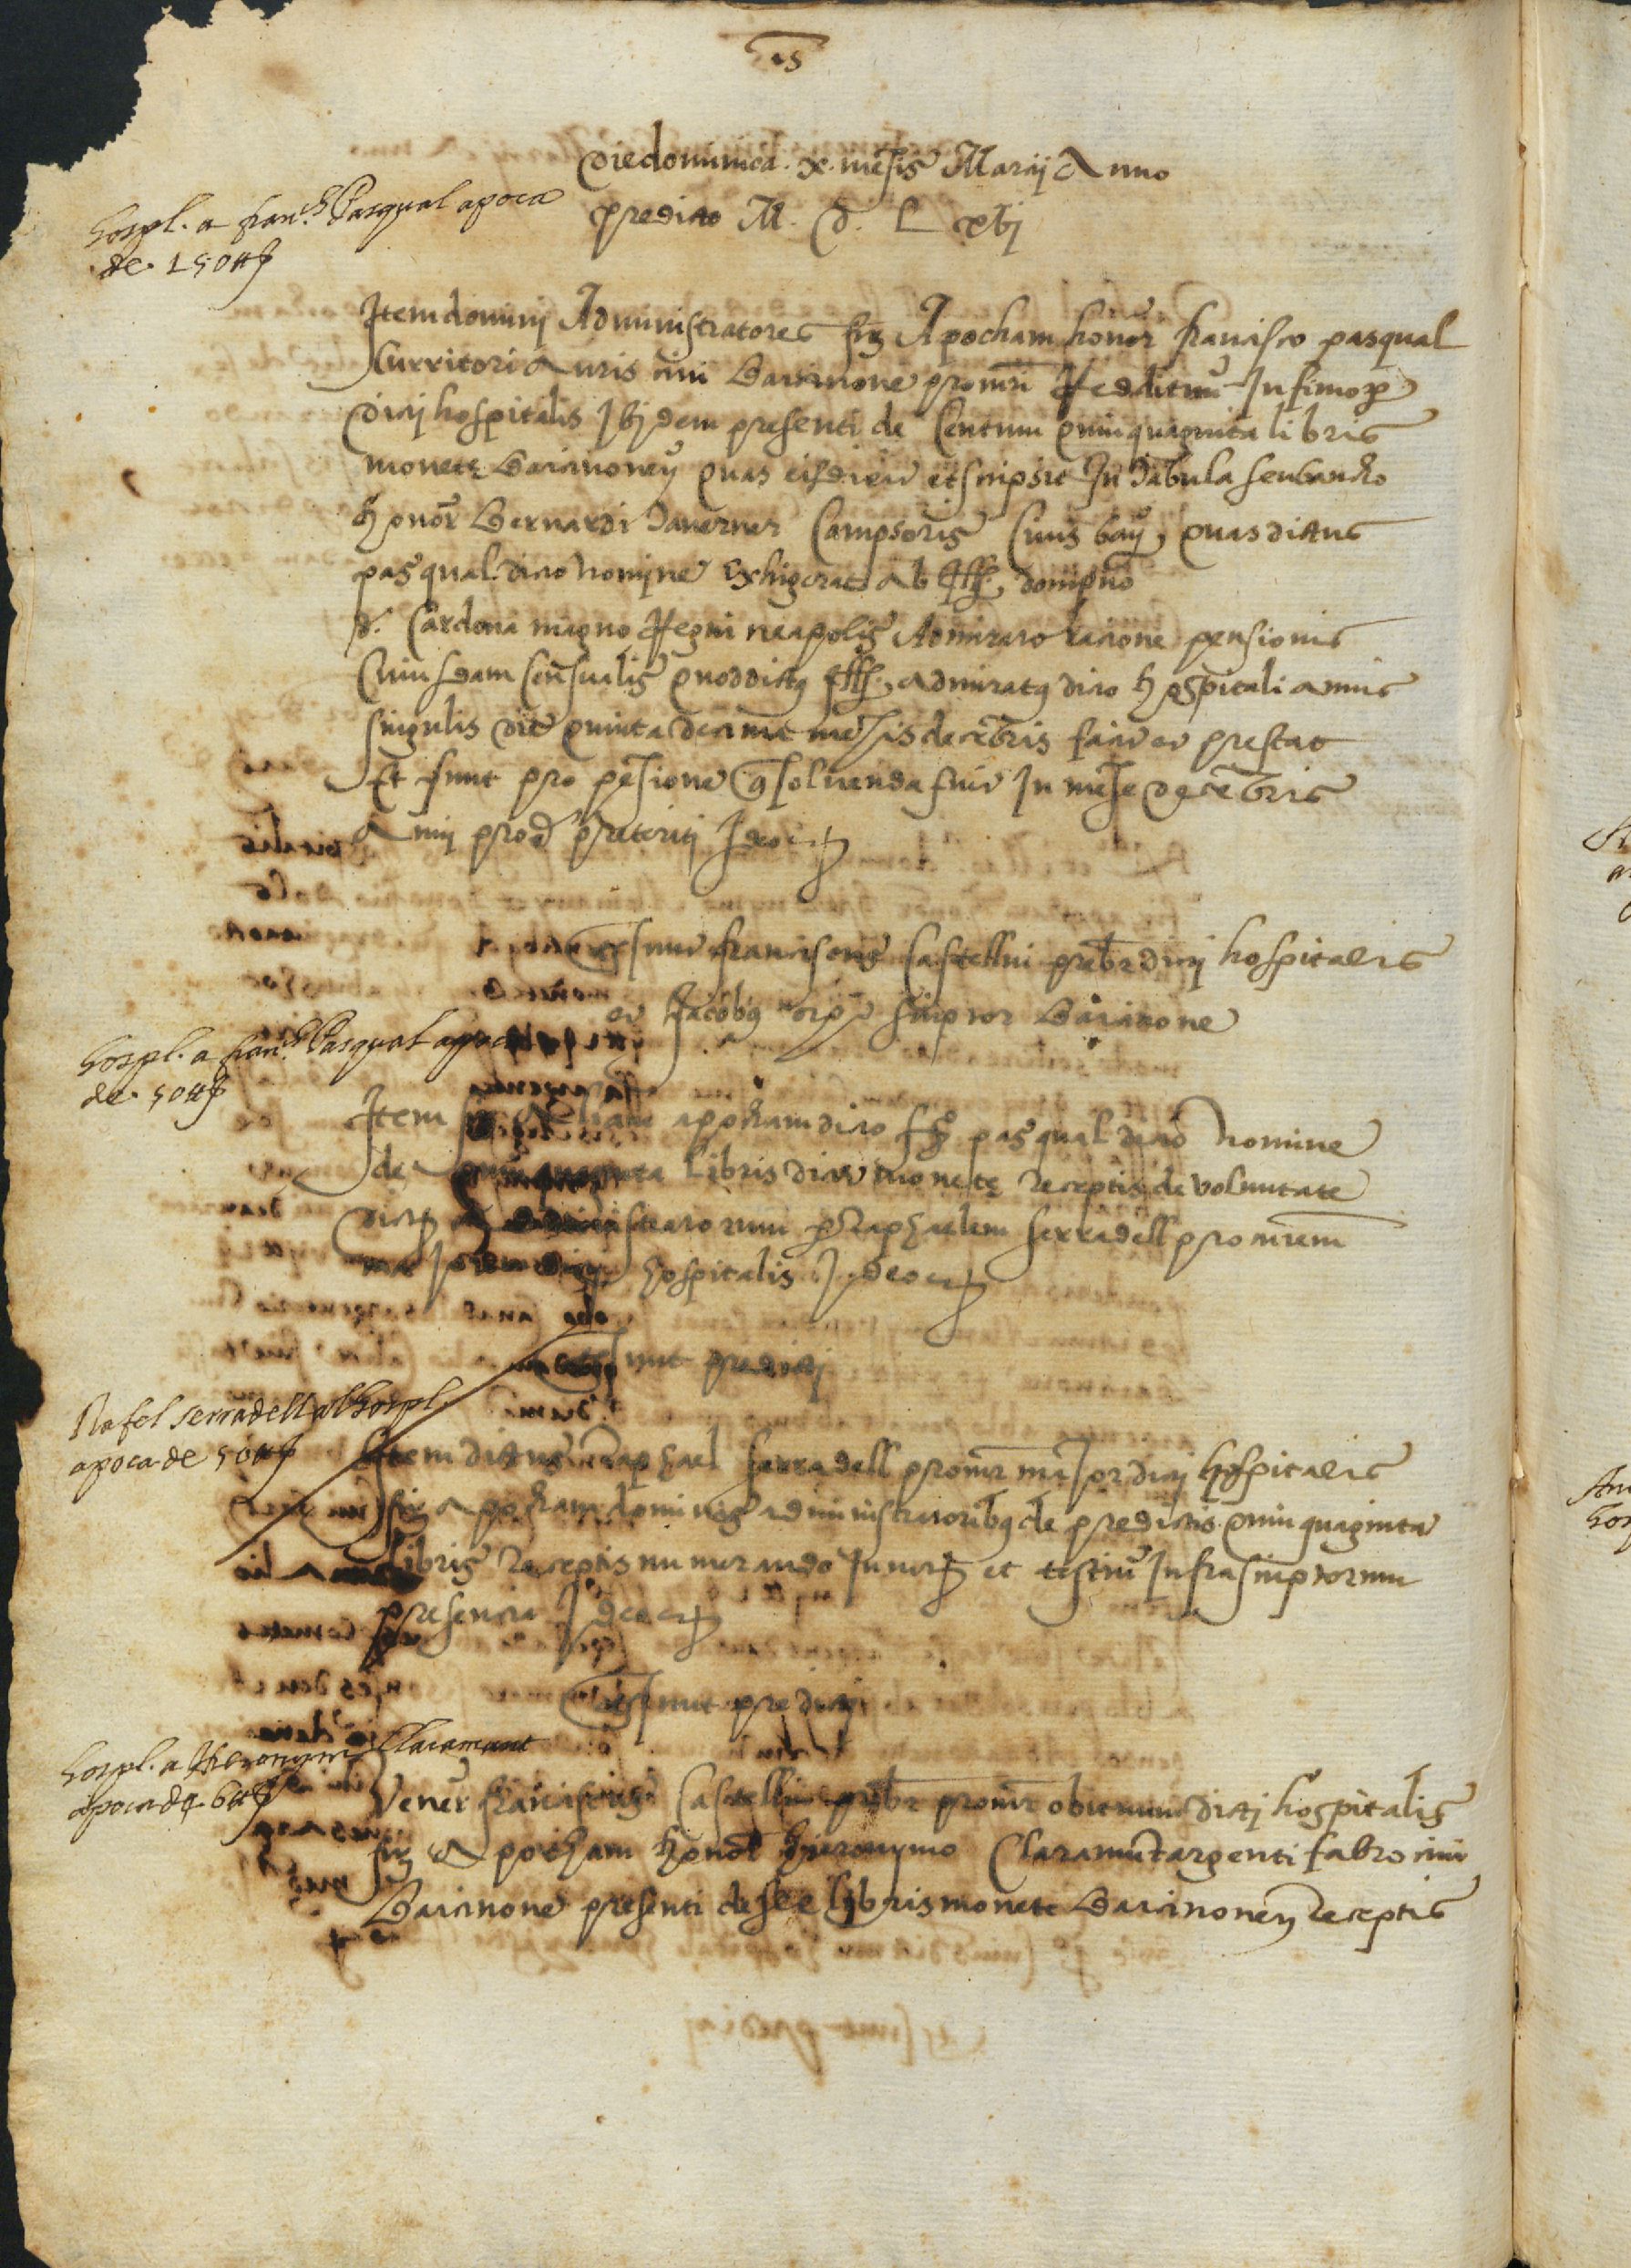 Jhs
Die dominica . x . mensis Marcij Anno
predicto M . D . L xvj
Hospl. a fran.ch Pasqual apoca
de 150 ll s
Item dominj Administratores fir. Apocham honor francisco pasqual
Curritori Auris civi Barcinone procurri Reddituu Infirmor
dicti hospitalis Ibidem presenti de Centum quinquaginta libris
monete Barcinonen quas eisdem et scripsit In tabula seu bancho
honor Bernardi Taverner Campsoris Civis barn, quas dictus
pasqual dicto nomine exhigerat ab Ill. domino
d. Cardona magno Regni neapolis Admirato racione pensionis
Cuiusdam Censualis quod dictus Ill. admiratus dicto hospitali annis
singulis die quinta decima mensis decembris facere et prestat
Et sunt pro pensione que solvenda fuit In mense decembris
Annj prox preteritj Ideo etc
Testes sunt franciscus Castellvi prebr dictj hospitalis
et Jacobus scriptor Barcinone
Hospl. a fran.ch Pasqual apoca
de 50 ll s
Item fir. Etiam apocham dicto fr. pasqual dicto nomine
de quinquaginta libris dicte monete receptis de voluntate
dictor administratorum per Raphaelem serradell procurrem
maiorem dicti hospitalis Ideo etc
Testes sunt predictj
Rafel serradell al hospl.
apoca de 50 ll s
Item dictus Raphael serradell procurr maior dictj hospitalis
fir. apocham dominis administratoribus de predictis quinquaginta
libris Receptis numerando In nor et testiu Infrascriptorum
presencia Ideo etc
Testes sunt predictj
Hospl. a Hieronym Claramunt
apoca de 6 ll s
Vener franciscus Castellvi prebr procurr obituum dictj hospitalis
fir. Apocham honor hieronymo Claramunt argenti fabro civi
Barcinone presenti de sex libris monete Barcinonen Receptis